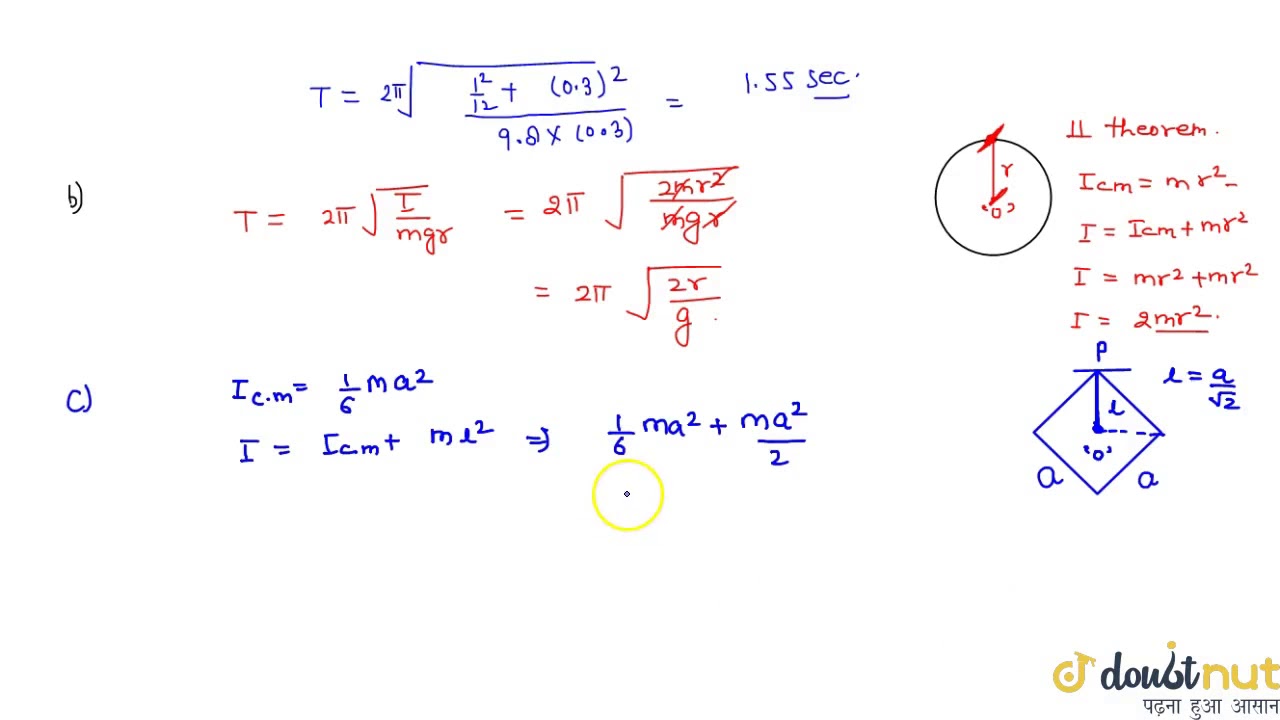 T = 2π√((1²/12 + (0.3)²)/(9.8 × (0.3))) = 1.55 sec.
b) T = 2π√(I/mgr) = 2π√(2mr²/mgr)
= 2π√(2r/g).
r
'O'
II theorem.
Icm = mr²-
I = Icm + mr²
I = mr² + mr²
I = 2mr².
c) Ic.m = 1/6 ma²
I = Icm + ml² ⇒ 1/6 ma² + ma²/2
P
l = a/√2
l
'O'
a a
doubtnut
पढ़ना हुआ आसान